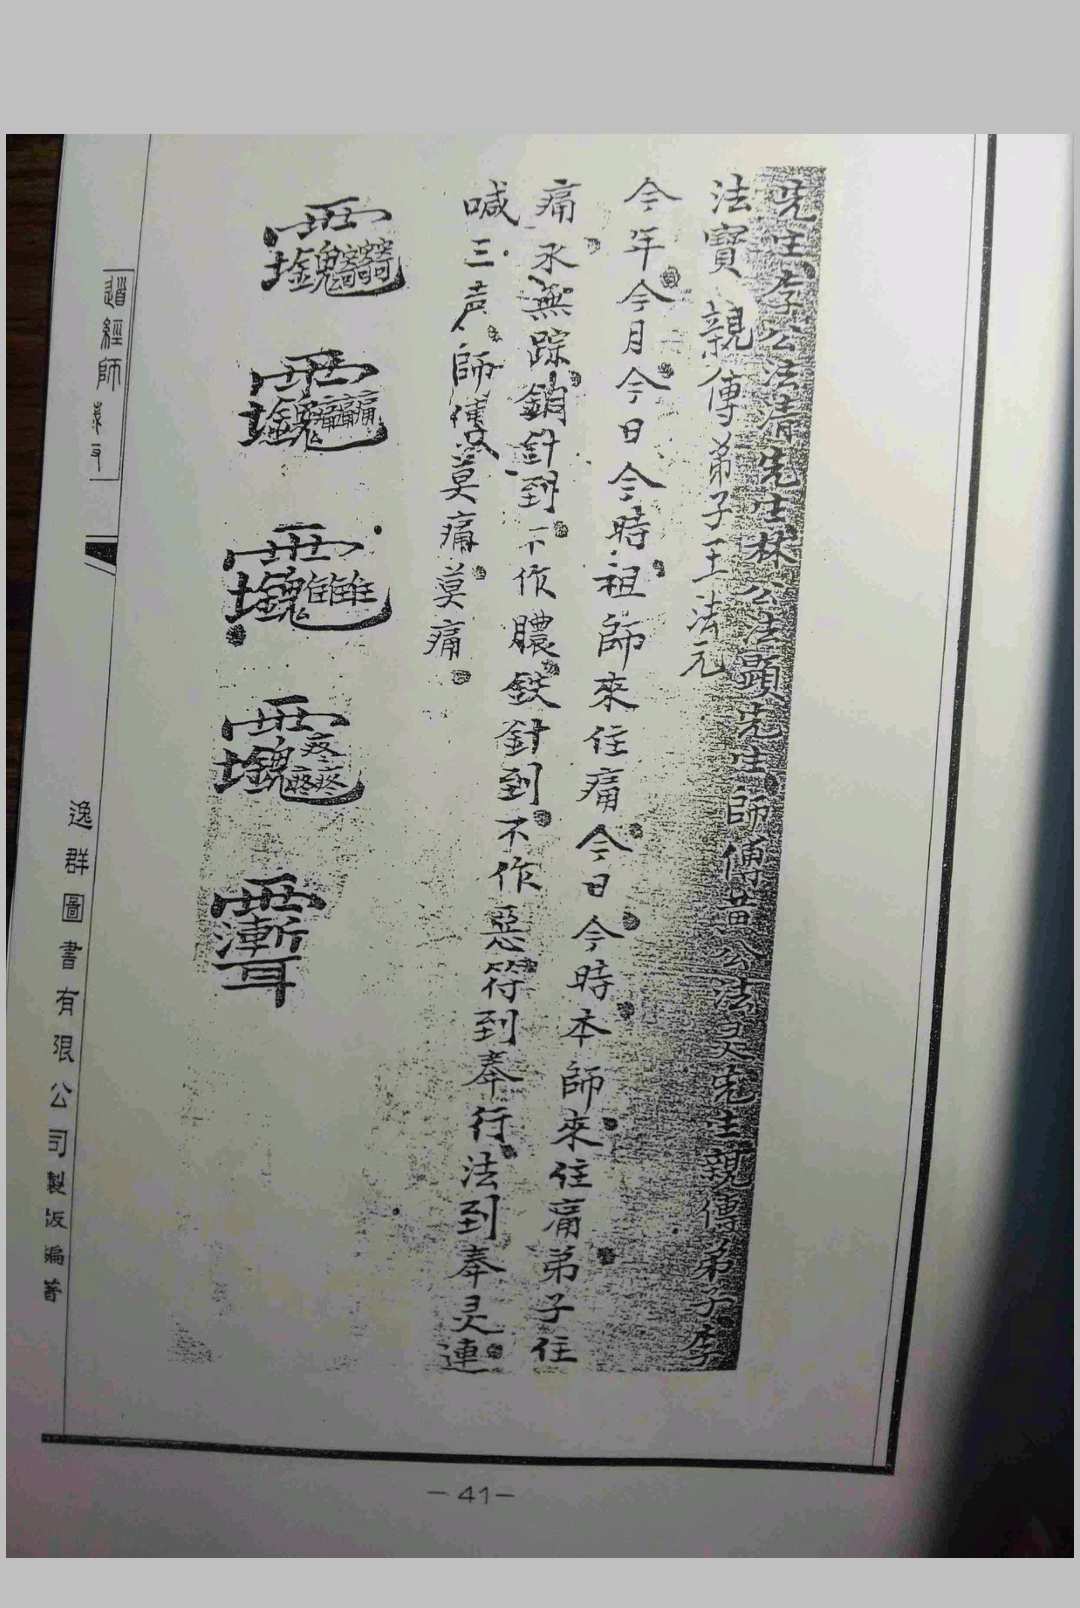 先生李公法清先生林公法顕先生師傅黄公法灵先生親傳弟子李
法寳親傳弟子王法元
今年今月今日今時祖師來住痛今日今時本師來住痛弟子住
痛永無踪銷針到不作膿鉄針到不作惡符到奉行法到奉灵連
喊三声師傅莫痛莫痛
道經師
逸群圖書有限公司製版編著
-41-